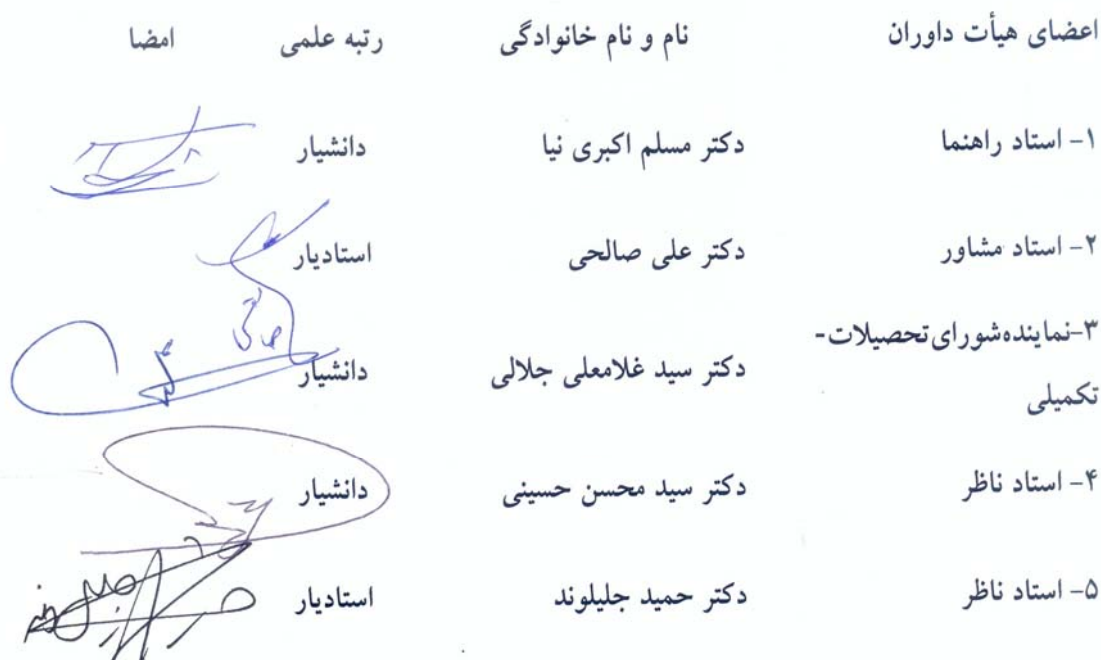 اعضای هیأت داوران نام و نام خانوادگی رتبه علمی امضا
۱- استاد راهنما دکتر مسلم اکبری نیا دانشیار
۲- استاد مشاور دکتر علی صالحی استادیار
۳-نماینده‌شورای‌تحصیلات-
تکمیلی دکتر سید غلامعلی جلالی دانشیار
۴- استاد ناظر دکتر سید محسن حسینی دانشیار
۵- استاد ناظر دکتر حمید جلیلوند استادیار